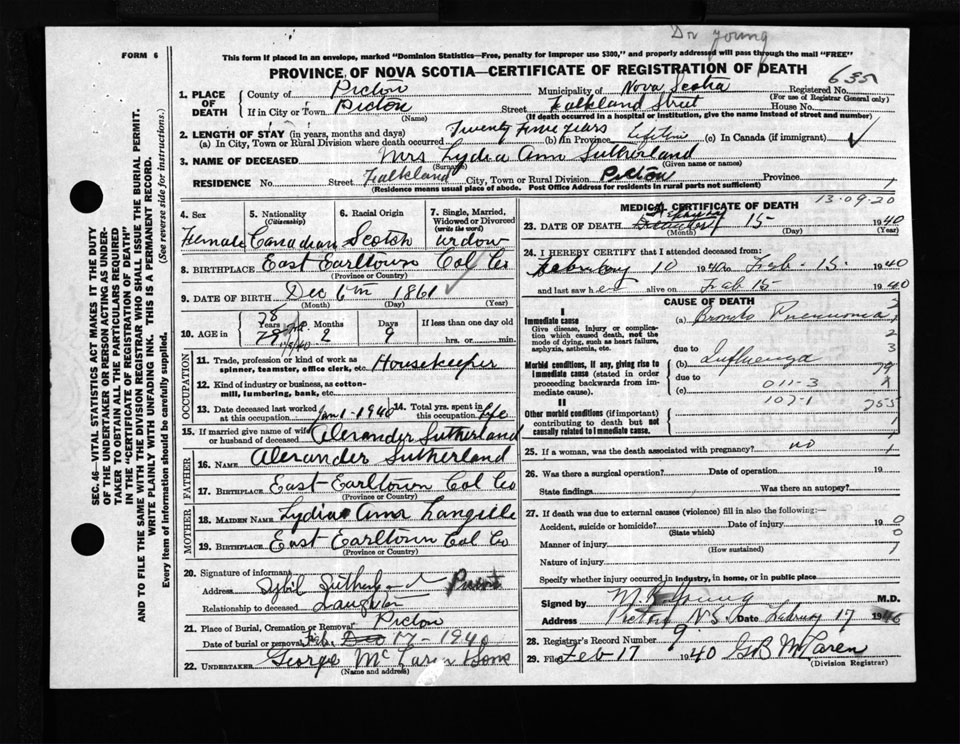 Dr Young
FORM 6
This form if placed in an envelope, marked "Dominion Statistics—Free, penalty for improper use $300," and properly addressed will pass through the mail "FREE"
PROVINCE OF NOVA SCOTIA—CERTIFICATE OF REGISTRATION OF DEATH
635
1. PLACE OF DEATH
County of Pictou Municipality of Nova Scotia Registered No.
(For use of Registrar General only)
If in City or Town Pictou Street Falkland Street House No.
(Name) (If death occurred in a hospital or institution, give the name instead of street and number)
2. LENGTH OF STAY (in years, months and days)
(a) In City, Town or Rural Division where death occurred Twenty Five years (b) In Province Lifetime (c) In Canada (if immigrant)
3. NAME OF DECEASED Mrs Lydia Ann Sutherland
(Surname) (Given name or names)
RESIDENCE No. Street Falkland City, Town or Rural Division Pictou Province 1
(Residence means usual place of abode. Post Office Address for residents in rural parts not sufficient)
4. Sex Female
5. Nationality (Citizenship) Canadian
6. Racial Origin Scotch
7. Single, Married, Widowed or Divorced (write the word) widow
8. BIRTHPLACE East Earltown Col Co
(Province or Country)
9. DATE OF BIRTH Dec 6th 1861
(Month) (Day) (Year)
10. AGE in 78 Years 79 Months 2 Days 9 If less than one day old hrs. or min.
OCCUPATION
11. Trade, profession or kind of work as spinner, teamster, office clerk, etc. Housekeeper
12. Kind of industry or business, as cotton-mill, lumbering, bank, etc.
13. Date deceased last worked at this occupation Jan 1-1940 14. Total yrs. spent in this occupation Life
15. If married give name of wife or husband of deceased Alexander Sutherland
FATHER
16. NAME Alexander Sutherland
17. BIRTHPLACE East Earltown Col Co
(Province or Country)
MOTHER
18. MAIDEN NAME Lydia Ann Langille
19. BIRTHPLACE East Earltown Col Co
(Province or Country)
20. Signature of informant Sybil Sutherland
Address
Relationship to deceased Daughter
21. Place of Burial, Cremation or Removal Pictou
Date of burial or removal Feb Dec 17-1940
22. UNDERTAKER George McLaren & Sons
(Name and address)
MEDICAL CERTIFICATE OF DEATH
13-09-20
23. DATE OF DEATH February 15 1940
(Month) (Day) (Year)
24. I HEREBY CERTIFY that I attended deceased from:
February 10 1940 to Feb-15- 1940
and last saw her alive on Feb 15 1940
CAUSE OF DEATH
I
Immediate cause
Give disease, injury or complication which caused death, not the mode of dying, such as heart failure, asphyxia, asthenia, etc.
(a) Broncho Pneumonia
due to
Morbid conditions, if any, giving rise to immediate cause (stated in order proceeding backwards from immediate cause).
(b) Influenza
due to
(c) 011-3
107-1
II
Other morbid conditions (if important) contributing to death but not causally related to immediate cause.
755
25. If a woman, was the death associated with pregnancy? no
26. Was there a surgical operation? Date of operation 19
State findings Was there an autopsy?
27. If death was due to external causes (violence) fill in also the following:—
Accident, suicide or homicide? Date of injury 19
(State which)
Manner of injury
(How sustained)
Nature of injury
Specify whether injury occurred in industry, in home, or in public place
Signed by Young M.D.
Address Pictou N.S. Date February 17 1940
28. Registrar's Record Number 9
29. Filed Feb 17 1940 GB McLaren
(Division Registrar)
SEC. 46—VITAL STATISTICS ACT MAKES IT THE DUTY
OF THE UNDERTAKER OR PERSON ACTING AS UNDER-
TAKER TO OBTAIN ALL THE PARTICULARS REQUIRED
IN THE "CERTIFICATE OF REGISTRATION OF DEATH"
AND TO FILE THE SAME WITH THE DIVISION REGISTRAR WHO SHALL ISSUE THE BURIAL PERMIT.
WRITE PLAINLY WITH UNFADING INK. THIS IS A PERMANENT RECORD.
Every item of information should be carefully supplied. (See reverse side for instructions.)